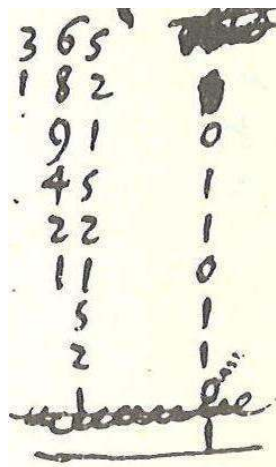 365
182
91 0
45 1
22 1
11 0
5 1
2 1
1 0
1